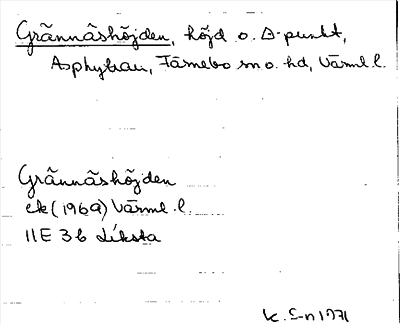 Grännåshöjden, höjd o. Δ-punkt,
Asphyttan, Färnebo sn o. hd, Värml. l.
Grännåshöjden
ek (1969) Värml. l.
11E 3b
1971